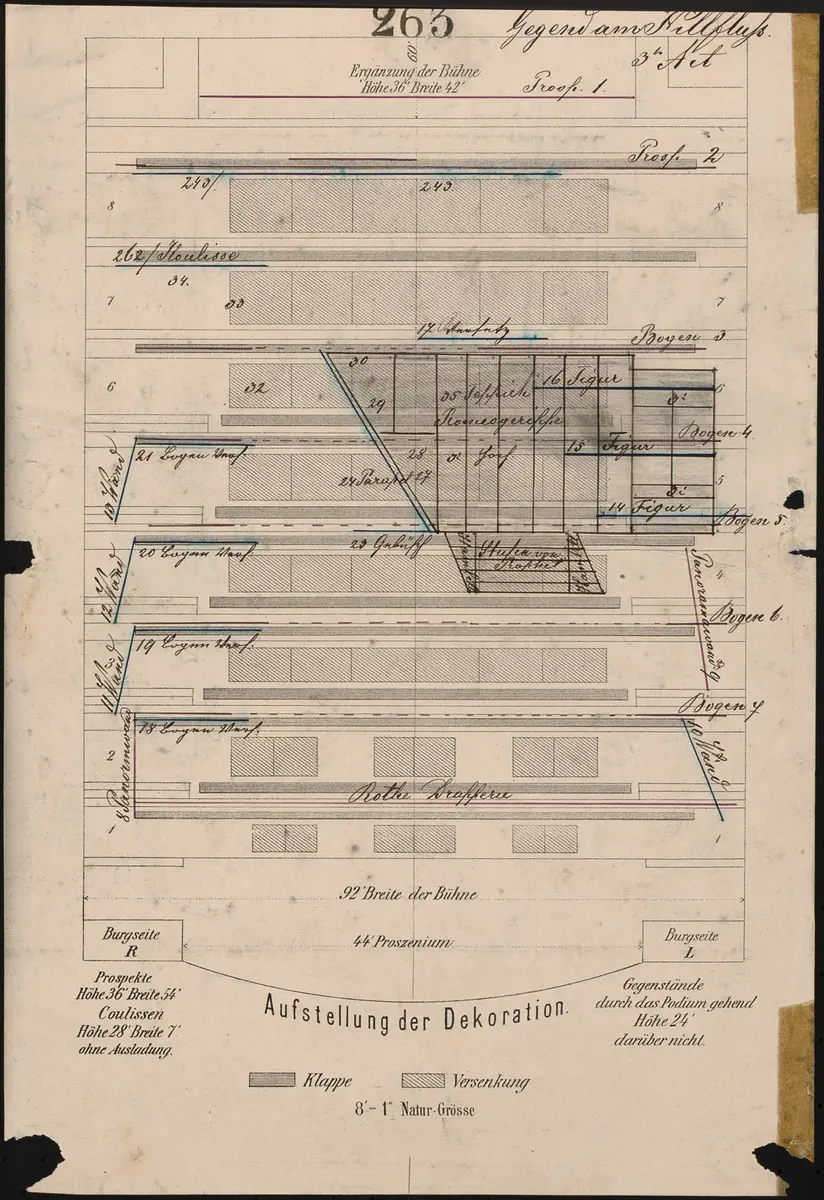 263
Gegend am Nillfluss.
3ter Act
60'
Ergänzung der Bühne
Höhe 36' Breite 42'
Prosp. 1.
Prosp. 2
243/.
243
8
8
262/ Koulisse
34.
33
7
7
17 Versetz
Bogen 3.
30
6
32
29
35 Teppich
16 Figur
6
Bogen 4
21 Bogen Vers.
28
15 Figur
13 Wand
24 Parapet 27
5
14 Figur
Bogen 5.
23 Gebüsch
20 Bogen Vers.
Stufen vom
Prophet
4
12 Wand
Panoramawand 9
Bogen 6.
19 Bogen Vers.
11 Wand
Bogen 7
18 Bogen Vers.
2
10 Wand
8 Panoramwand
Rothe Drapperie
1
1
92' Breite der Bühne
Burgseite
R
44' Proszenium
Burgseite
L
Prospekte
Höhe 36' Breite 54'
Coulissen
Höhe 28' Breite 7'
ohne Ausladung.
Gegenstände
durch das Podium gehend
Höhe 24'
darüber nicht.
Aufstellung der Dekoration.
Klappe
Versenkung
8' - 1" Natur-Grösse